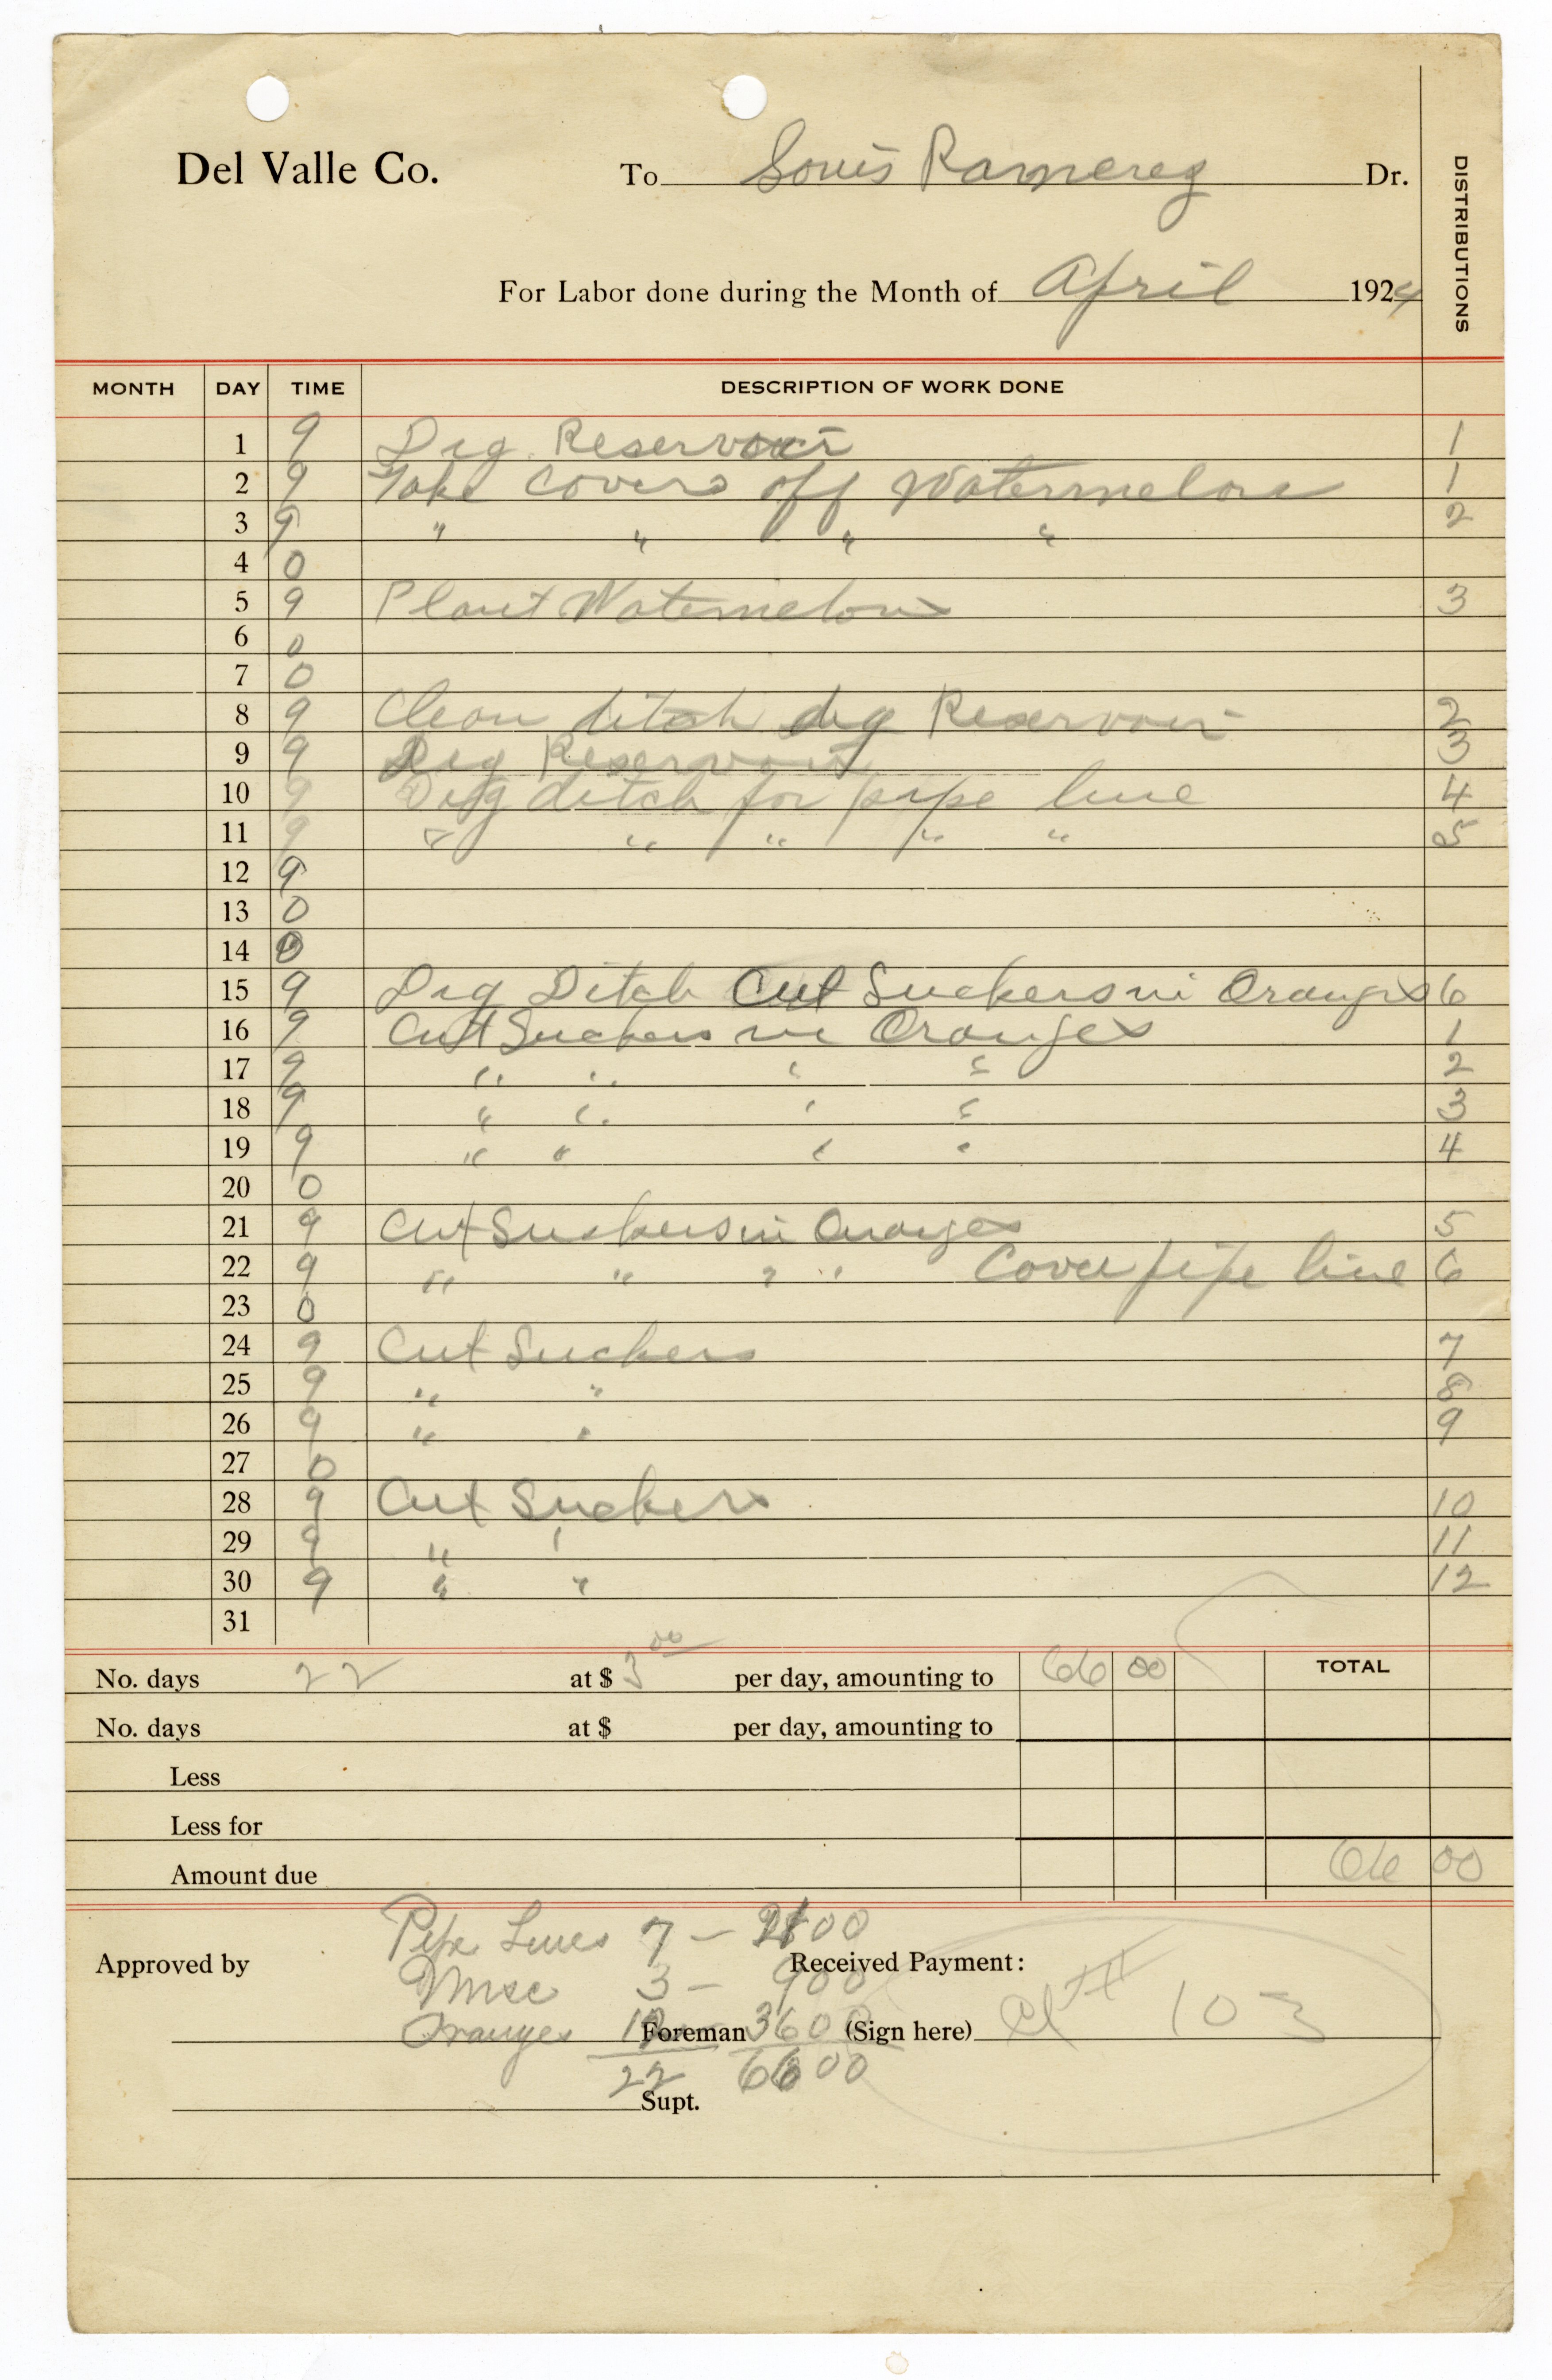 Del Valle Co. To Louis Ramerez Dr.
DISTRIBUTIONS
For Labor done during the Month of April 1924
MONTH DAY TIME DESCRIPTION OF WORK DONE
1 9 Dig Reservoir 1
2 9 Take Covers off Watermelons 1
3 9 " " " " 2
4 0
5 9 Plant Watermelons 3
6 0
7 0
8 9 Clean ditch dig Reservoir 2
9 9 Dig Reservoir 3
10 9 Dig ditch for pipe line 4
11 9 " " " " " 5
12 9
13 0
14 0
15 9 Dig Ditch Cut Suckers in Oranges 6
16 9 Cut Suckers in Oranges 1
17 9 " " " " 2
18 9 " " " " 3
19 9 " " " " 4
20 0
21 9 Cut Suckers in Oranges 5
22 9 " " " " Cover pipe line 6
23 0
24 9 Cut Suckers 7
25 9 " " 8
26 9 " " 9
27 0
28 9 Cut Suckers 10
29 9 " " 11
30 9 " " 12
31
No. days 22 at $ 3 00 per day, amounting to 66 00 TOTAL
No. days at $ per day, amounting to
Less
Less for
Amount due 66 00
Pipe Lines 7 — 2100
Approved by Received Payment:
Misc 3 — 900
Oranges 12 Foreman 3600 (Sign here) 103
22 6600
Supt.